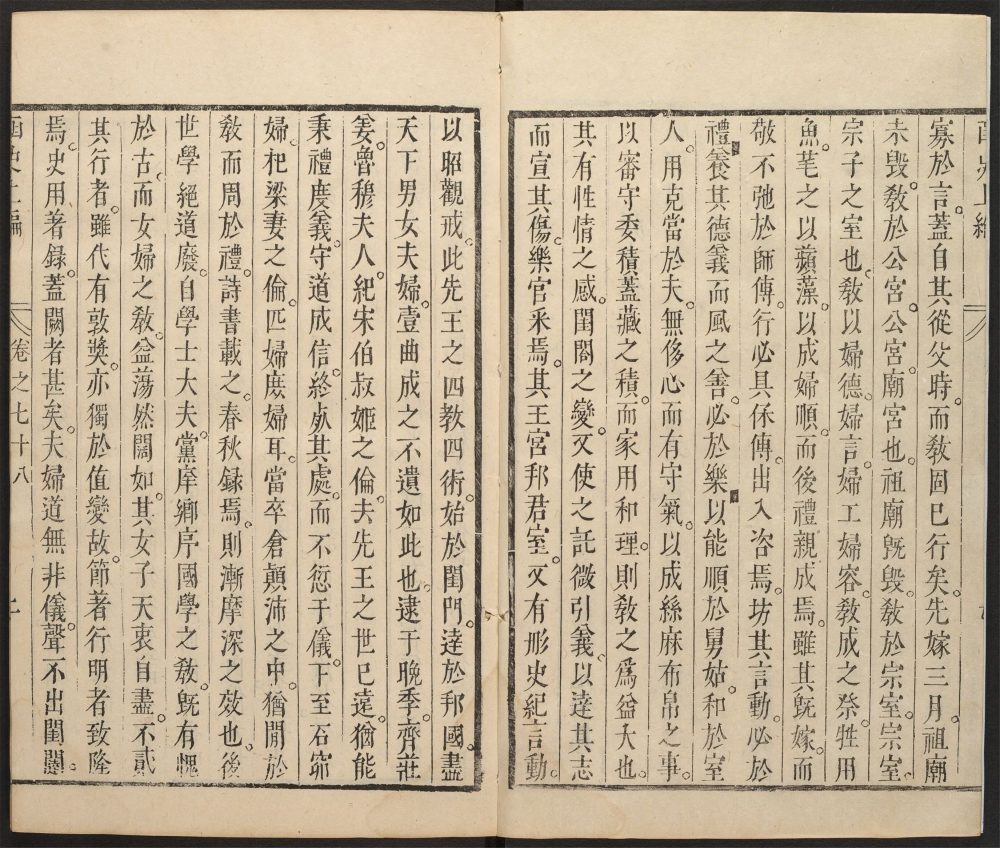 函史上編
寡於言。蓋自其從父時。而敎固巳行矣。先嫁三月。祖廟
未毀。敎於公宮。公宮。廟宮也。祖廟旣毀。敎於宗室。宗室。
宗子之室也。敎以婦德。婦言。婦工。婦容。敎成之祭。牲用
魚。芼之以蘋藻。以成婦順。而後禮親成焉。雖其旣嫁。而
敬不弛於師傅。行必具保傅。出入咨焉。坊其言動。必於
禮。養其德義。而風之善。必於樂。以能順於舅姑。和於室
人。用克當於夫。無侈心而有守氣。以成絲麻布帛之事。
以審守委積蓋藏之積。而家用和理。則敎之爲益大也。
其有性情之感。閨閤之變。又使之託微引義。以達其志
而宣其傷。樂官采焉。其王宮邦君室。又有彤史紀言動。
以昭觀戒。此先王之四教四術。始於閨門。達於邦國。盡
天下男女夫婦。壹曲成之不遺如此也。逮于晚季。齊莊
姜。魯穆夫人。紀宋伯叔姬之倫。夫先王之世巳遠。猶能
秉禮度義。守道成信。終始其處。而不愆于儀。下至石窌
婦。杞梁妻之倫。匹婦庶婦耳。當卒倉顛沛之中。猶閒於
敎而周於禮。詩書載之。春秋録焉。則漸摩深之效也。後
世學絕道廢。自學士大夫。黨庠鄉序國學之敎。旣有愧
於古。而女婦之敎。益蕩然闊如。其女子天衷自盡。不貳
其行者。雖代有敦奬。亦獨於値變故。節著行明者致隆
焉。史用著録。蓋闕者甚矣。夫婦道無非儀。聲不出閨閫。
函史上編
卷之七十八
二